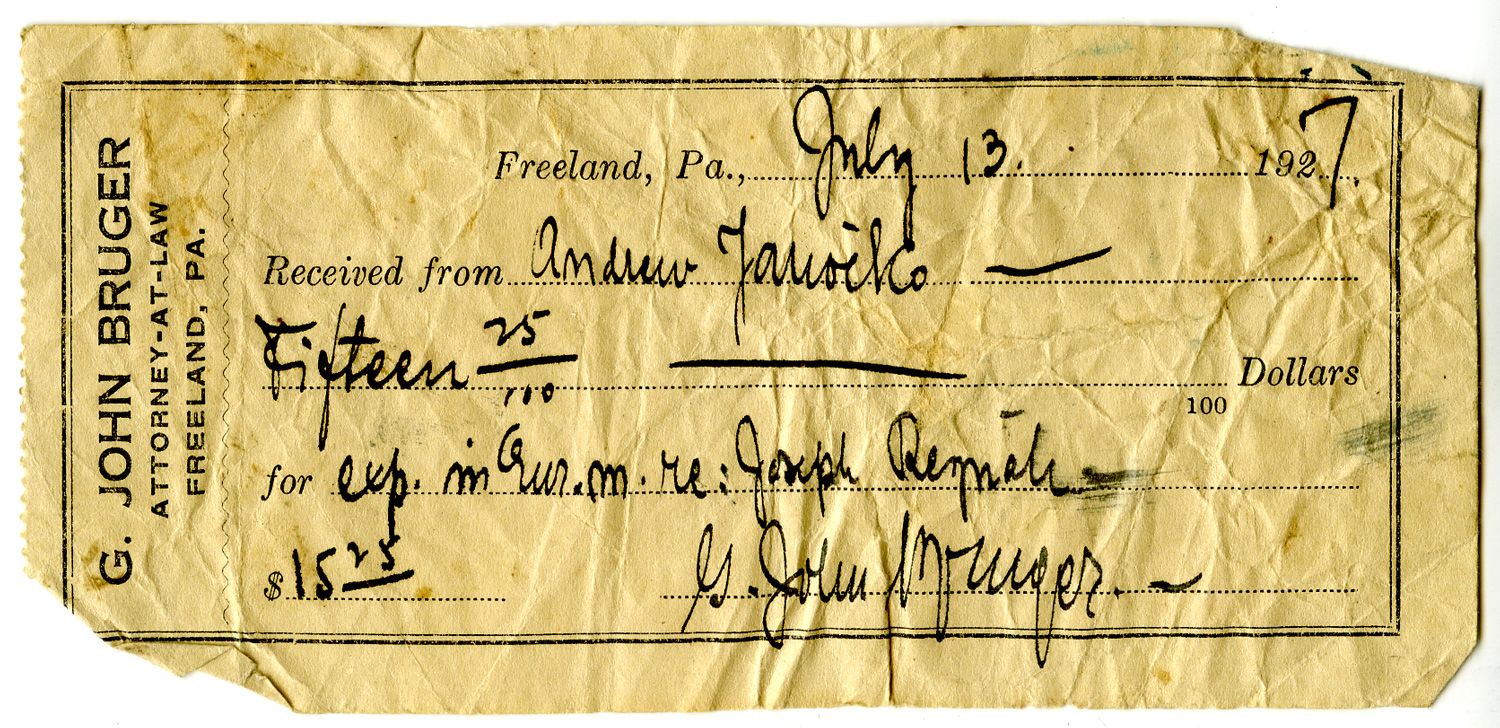 G. JOHN BRUGER
ATTORNEY-AT-LAW
FREELAND, PA.
Freeland, Pa., July 13. 1927.
Received from Andrew
Fifteen 25/100 Dollars
100
for exp. in re: Joseph
$ 15 25
G. John Bruger.